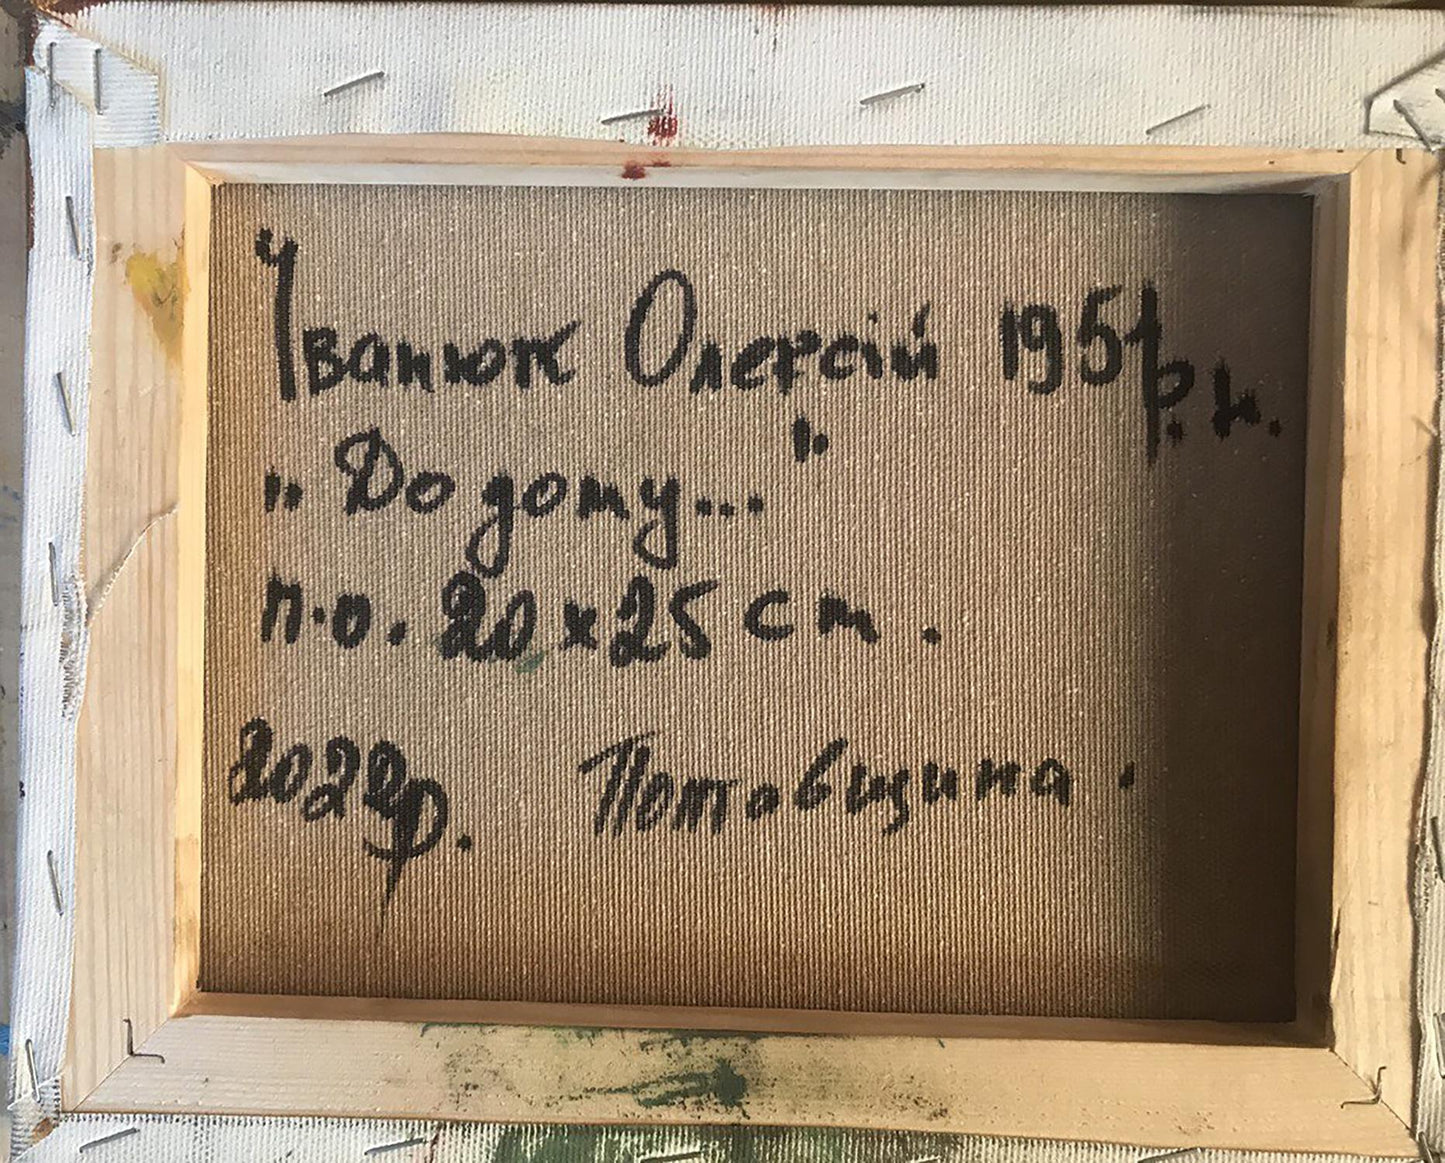 Іванюк Олексій 1951р.н.
„До дому..."
п.о. 20x25 cm.
2022р. Потовщина.